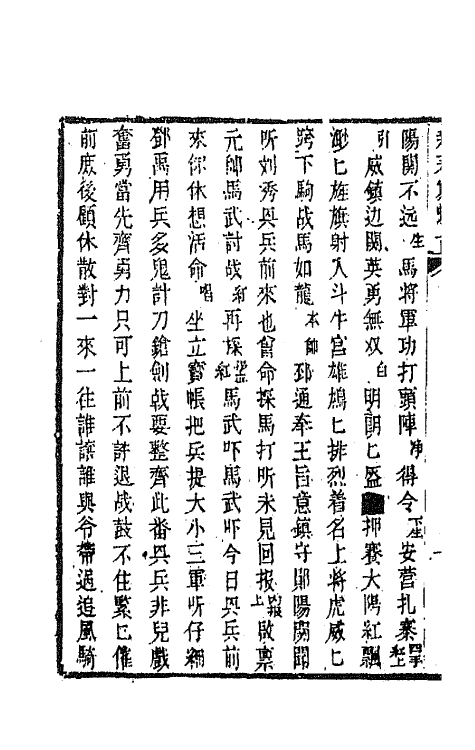 陽関不远生馬將軍功打頭陣净得令下生安营扎寨四手
引威鎮边関英勇無双白明朗匕盔押賽大陽紅飄
渺匕旌旗射入斗牛宫雄鴆匕排烈着名上将虎威匕
跨下駒战馬如龍本帥邳通奉王旨意鎮守郧陽関聞
听刘秀興兵前來也曾命探馬打听未見回报上啟禀
元帥馬武討战再探馬武吓馬武吓今日興兵前
來你休想活命唱坐立寳帳把兵提大小三軍听仔細
鄧禹用兵多鬼計刀鎗劍戟要整齊此番興兵非兒戲
奮勇當先齊勇力只可上前不許退战鼓不住緊匕催
前庶後顧休散對一來一往誰讓誰與爷帶過追風騎